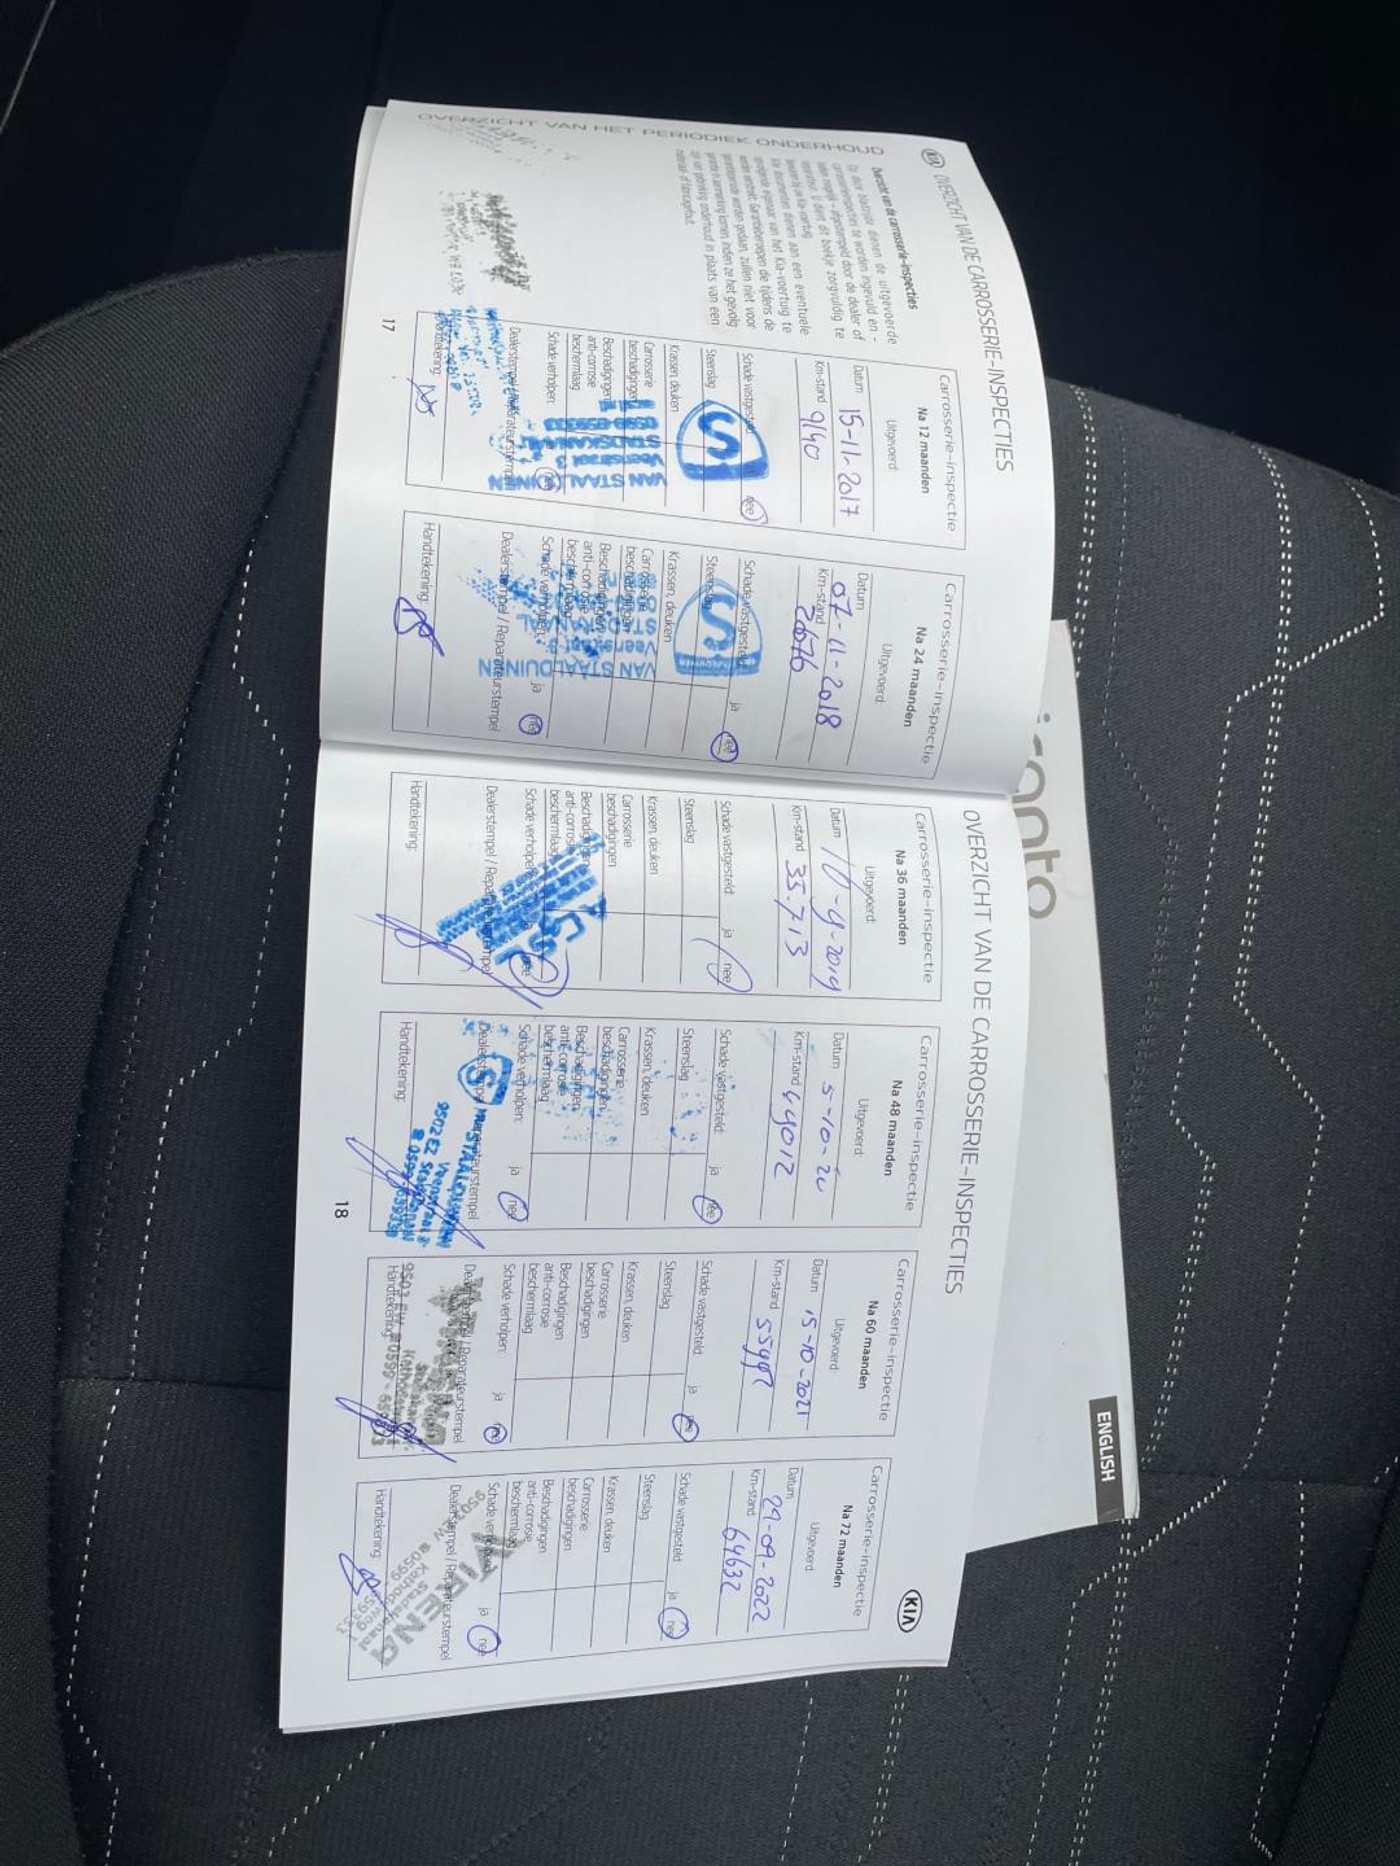 KIA OVERZICHT VAN DE CARROSSERIE-INSPECTIES
Overzicht van de carrosserie-inspecties
Op deze bladzijde dienen de uitgevoerde
carrosserieinspecties te worden ingevuld en -
indien mogelijk - afgestempeld door de dealer of
reparateur. U dient dit boekje zorgvuldig te
bewaren bij uw Kia-voertuig.
De documenten dienen aan een eventuele
volgende eigenaar van het Kia-voertuig te
worden verstrekt. Garantieclaims die tijdens de
garantieperiode worden gedaan, zullen niet voor
garantie in aanmerking komen, indien ze het gevolg
zijn van gebrekkig onderhoud in plaats van een
materiaal- of fabricagefout.
OVERZICHT VAN HET PERIODIEK ONDERHOUD
Carrosserie-inspectie
Na 12 maanden
Uitgevoerd:
Datum 15-11-2017
Km-stand 9140
Schade vastgesteld: nee
Steenslag
Krassen, deuken
Carrosserie
beschadigingen
Beschadigingen
anti-corrosie
beschermlaag
Schade verholpen: nee
Dealerstempel / Reparateurstempel
VAN STAALDUINEN
STADSKANAAL
Handtekening:
17
Carrosserie-inspectie
Na 24 maanden
Uitgevoerd:
Datum 07-11-2018
Km-stand 20676
Schade vastgesteld: ja nee
Steenslag
Krassen, deuken
Carrosserie
beschadigingen
Beschadigingen
anti-corrosie
beschermlaag
Schade verholpen: ja nee
Dealerstempel / Reparateurstempel
VAN STAALDUINEN
STADSKANAAL
Handtekening:
OVERZICHT VAN DE CARROSSERIE-INSPECTIES
Carrosserie-inspectie
Na 36 maanden
Uitgevoerd:
Datum 10-9-2019
Km-stand 35.713
Schade vastgesteld: ja nee
Steenslag
Krassen, deuken
Carrosserie
beschadigingen
Beschadigingen
anti-corrosie
beschermlaag
Schade verholpen: ja nee
Dealerstempel / Reparateurstempel
Handtekening:
Carrosserie-inspectie
Na 48 maanden
Uitgevoerd:
Datum 5-10-20
Km-stand 49012
Schade vastgesteld: ja nee
Steenslag
Krassen, deuken
Carrosserie
beschadigingen
Beschadigingen
anti-corrosie
beschermlaag
Schade verholpen: ja nee
Dealerstempel / Reparateurstempel
9502 EZ
Handtekening:
18
Carrosserie-inspectie
Na 60 maanden
Uitgevoerd:
Datum 15-10-2021
Km-stand
Schade vastgesteld: ja nee
Steenslag
Krassen, deuken
Carrosserie
beschadigingen
Beschadigingen
anti-corrosie
beschermlaag
Schade verholpen: ja nee
Dealerstempel / Reparateurstempel
Handtekening:
Carrosserie-inspectie
Na 72 maanden
Uitgevoerd:
Datum 29-09-2022
Km-stand 64632
Schade vastgesteld: ja nee
Steenslag
Krassen, deuken
Carrosserie
beschadigingen
Beschadigingen
anti-corrosie
beschermlaag
Schade verholpen: ja nee
Dealerstempel / Reparateurstempel
Stadskanaal
Handtekening:
KIA
icanto
ENGLISH